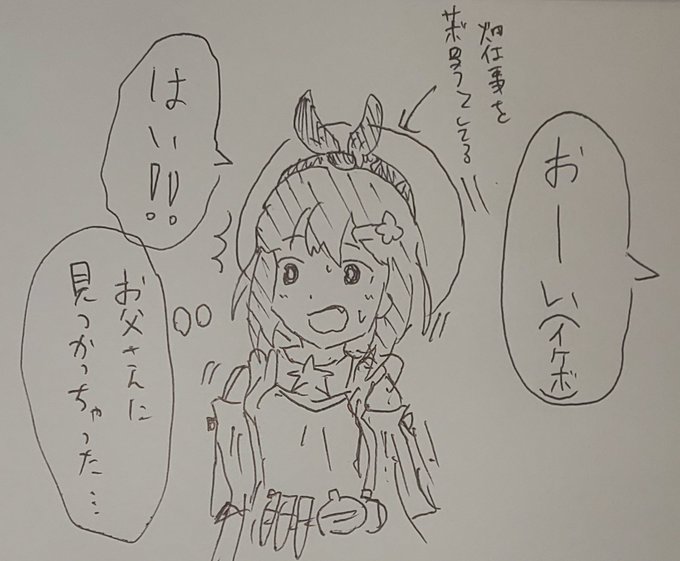 おーい(イケボ)
畑仕事を
サボろうとしてる
はい!!
お父さんに
見つかっちゃった…